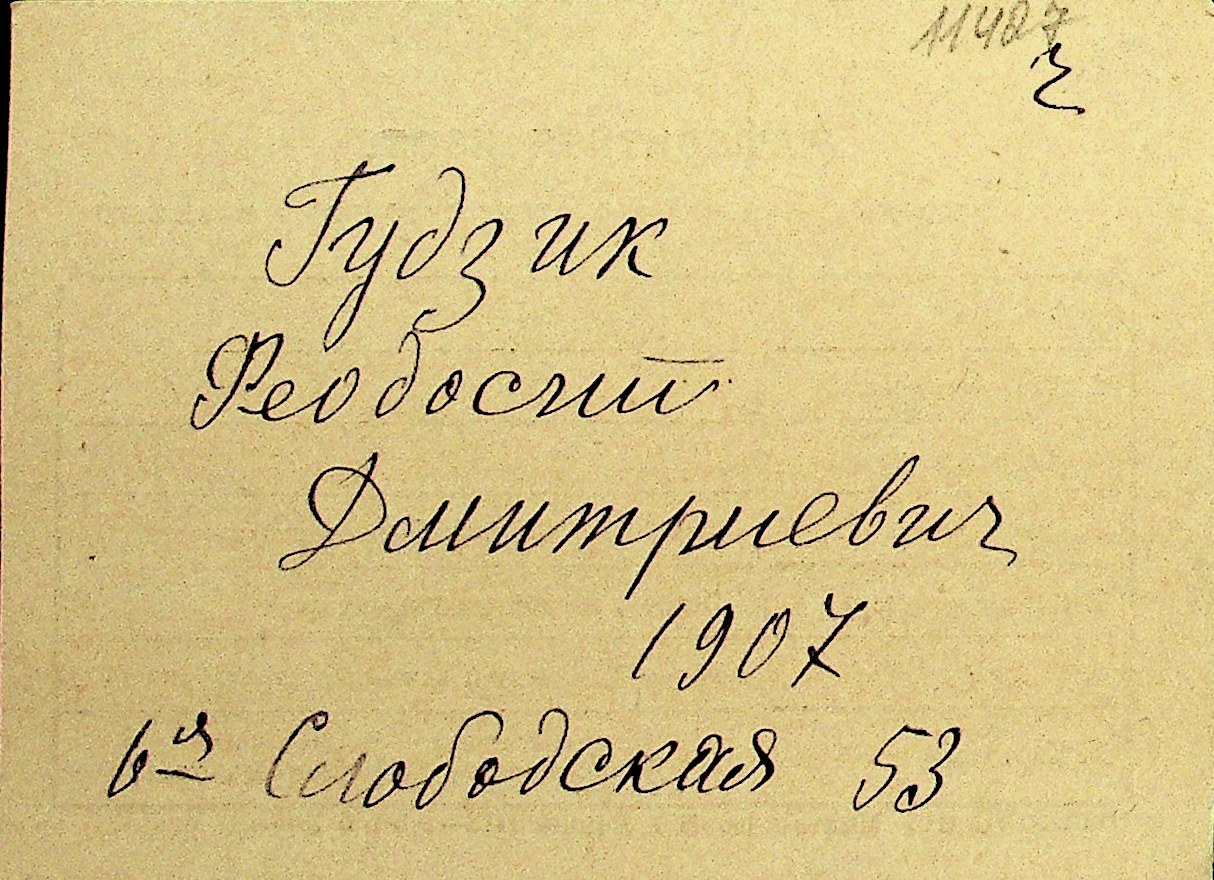 11427
г
Гудзик
Феодосий
Дмитриевич
1907
6я Слободская 53